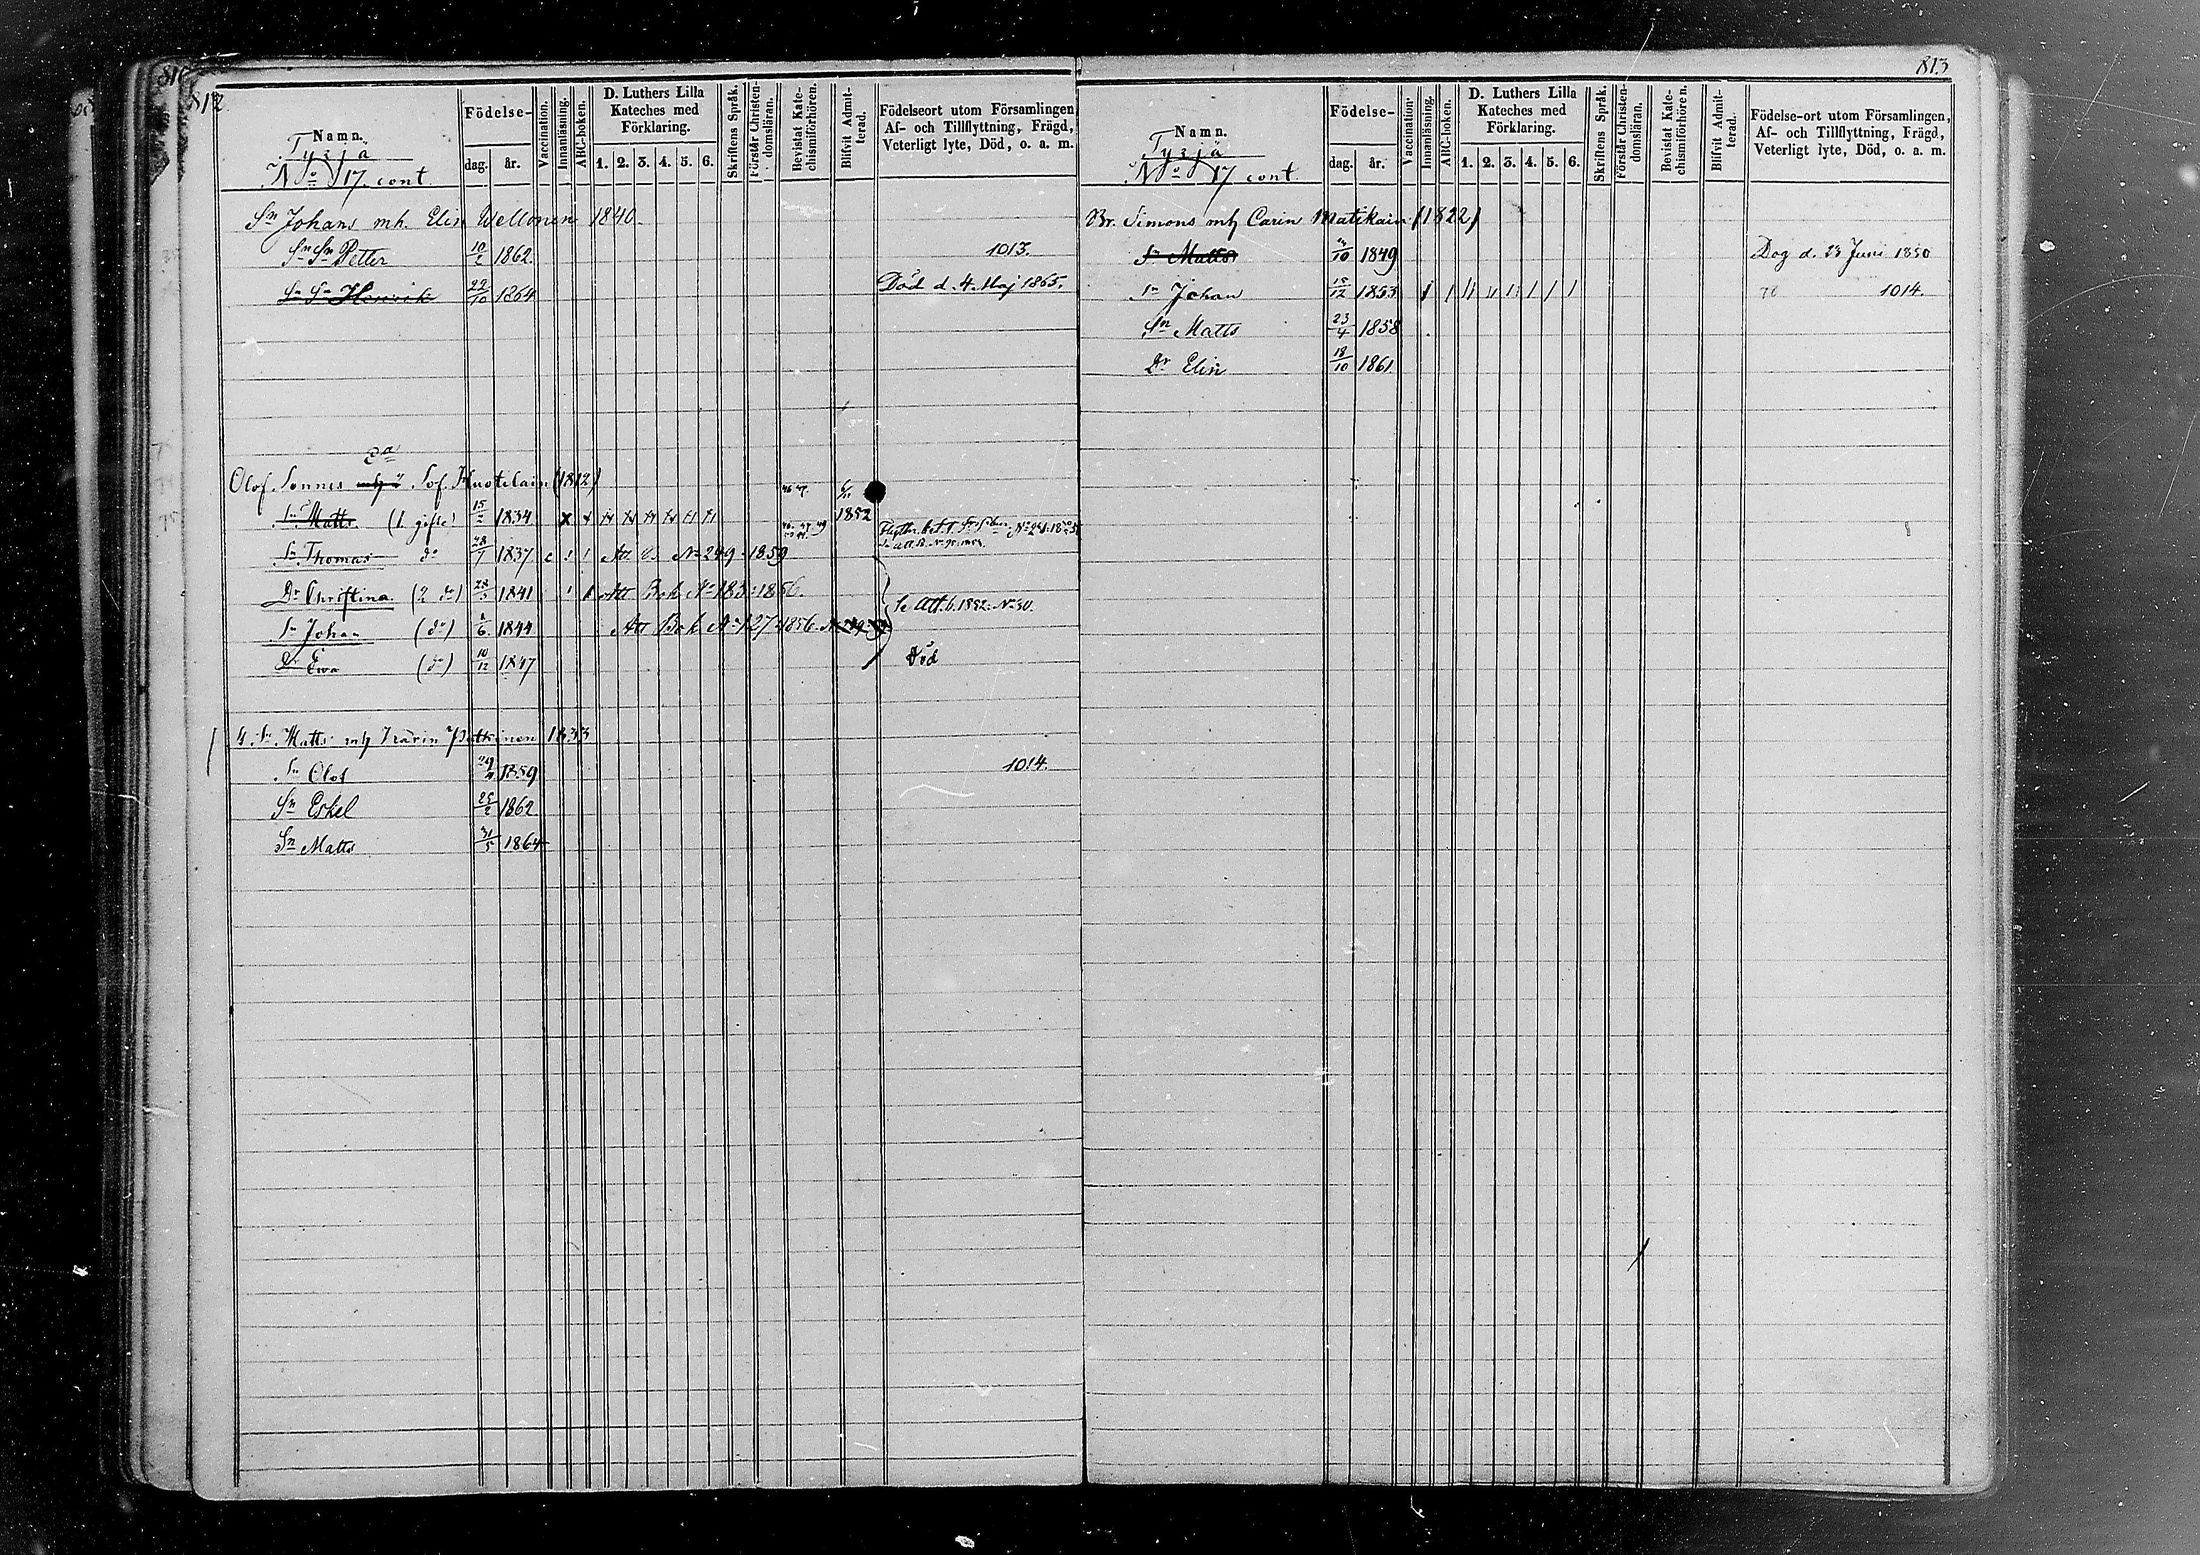 812
Namn.
Tyrjä
No 17. cont.
Födelse-
dag.
år.
Vaccination.
Innanläsning.
ABC-boken.
D. Luthers Lilla
Kateches med
Förklaring.
1. 2. 3. 4. 5. 6.
Skriftens Språk.
Förstår Christen-
domsläran.
Bevistat Kate-
chismiförhören.
Blifvit Admit-
terad.
Födelseort utom Församlingen
Af- och Tillflyttning, Frägd,
Veterligt lyte, Död, o. a. m.
Sn Johans mh. Elin Wellonen 1840.
Sn Sn Petter 10/2 1862. 1013.
Sn Sn Henrik 22/10 1864 Död d. 4. Maj 1865.
Olof Sonnes Sof. Kuotilain (1812)
Sn Matts (1 gifte) 1834 1852
Sn Thomas do 28/1 1837 Att No 249 1859
Dr Christina (2 do) 1841 Att Bok No 183: 1856.
Sn Johan (do) 6 1844 Att Bok No 127 1856. Se Att. b. 1852. No 30.
Dr Ewa (do) 10/12 1847 död
4. Sn Matts mh Karin Putkinen 1833
Sn Olof 29/4 1859 1014.
Sn Eskel 25/2 1862
Sn Matts 31/5 1864
813
Namn.
Tyrjä
No 17 cont.
Födelse-
dag.
år.
Vaccination.
Innanläsning.
ABC-boken.
D. Luthers Lilla
Kateches med
Förklaring.
1. 2. 3. 4. 5. 6.
Skriftens Språk.
Förstår Christen-
domsläran.
Bevistat Kate-
chismiförhören.
Blifvit Admit-
terad.
Födelse-ort utom Församlingen,
Af- och Tillflyttning, Frägd,
Veterligt lyte, Död, o. a. m.
Br. Simons mh Carin Matikain (1822)
Sn Matts 10 1849 Dog d. 23 Juni 1850
Sn Johan 15/12 1853 1014.
Sn Matts 23/4 1858
Dr Elin 18/10 1861.